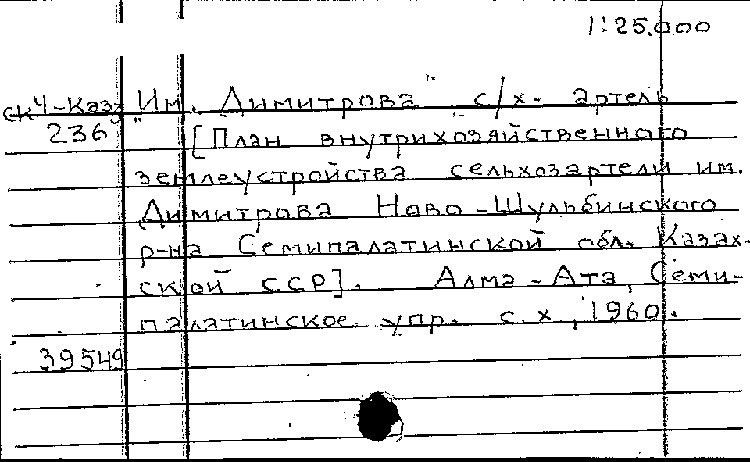 1:25.000
ск4-Каз "Им. Димитрова" с/х. артель
236 [План внутрихозяйственного
землеустройства сельхозартели им.
Димитрова Ново-Шульбинского
р-на Семипалатинской обл. Казах-
ской ССР]. Алма-Ата, Семи-
палатинское упр. с.х, 1960.
39549